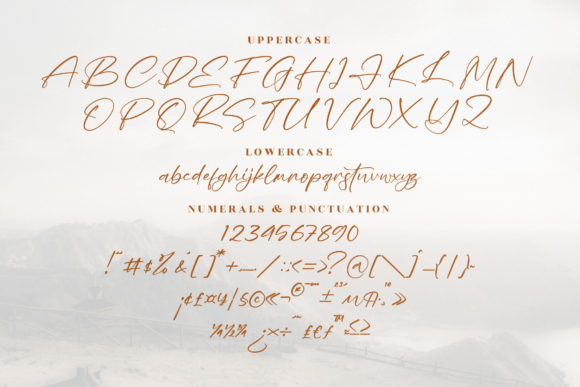 UPPERCASE
ABCDEFGHIJKLMN
OPQRSTUVWXYZ
LOWERCASE
abcdefghijklmnopqrstuvwxyz
NUMERALS & PUNCTUATION
1234567890
!"#$%&'[]*+,-./:;<=>?@[\]^_{|}~
¡¢£¤¥¦§©«¬®¯°±²³´µ¶·¸¹º»
¼½¾¿×÷ ₤€ƒ™≈≤≥